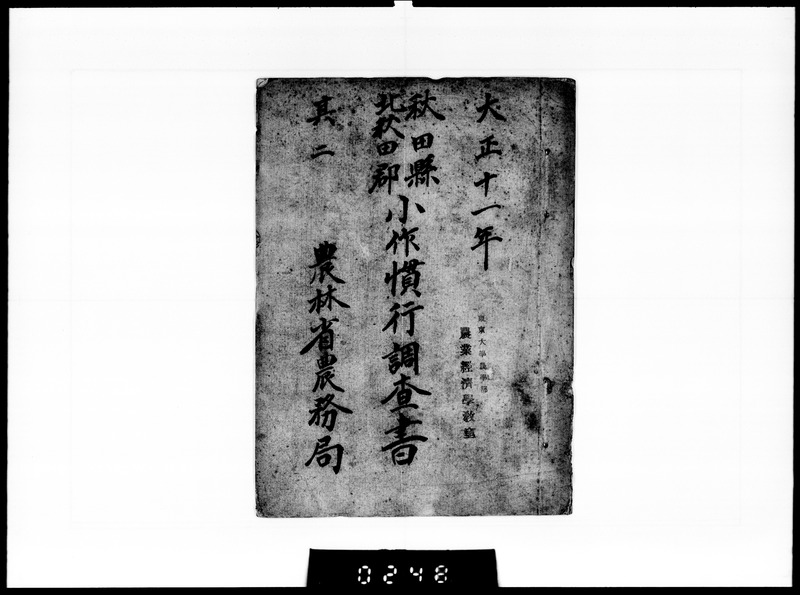 大正十一年
秋田縣
北秋田郡
小作慣行調査書
其二
農林省農務局
東京大學農學部
農業經濟學教室
0248